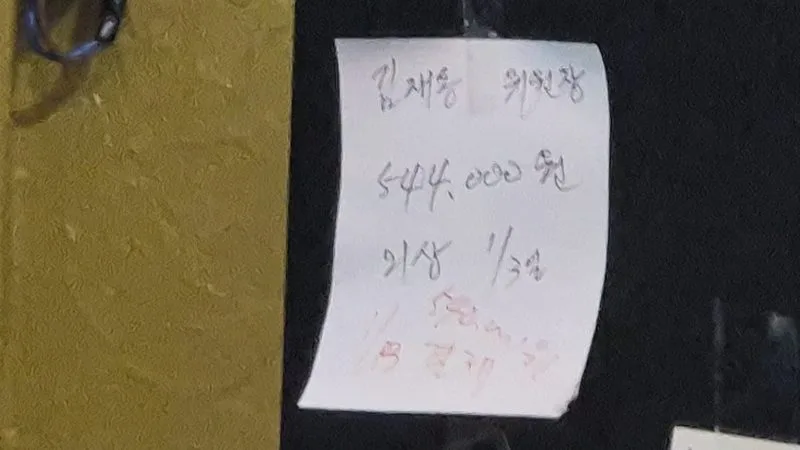 김재용 위원장
544,000원
외상 1/3일
결제